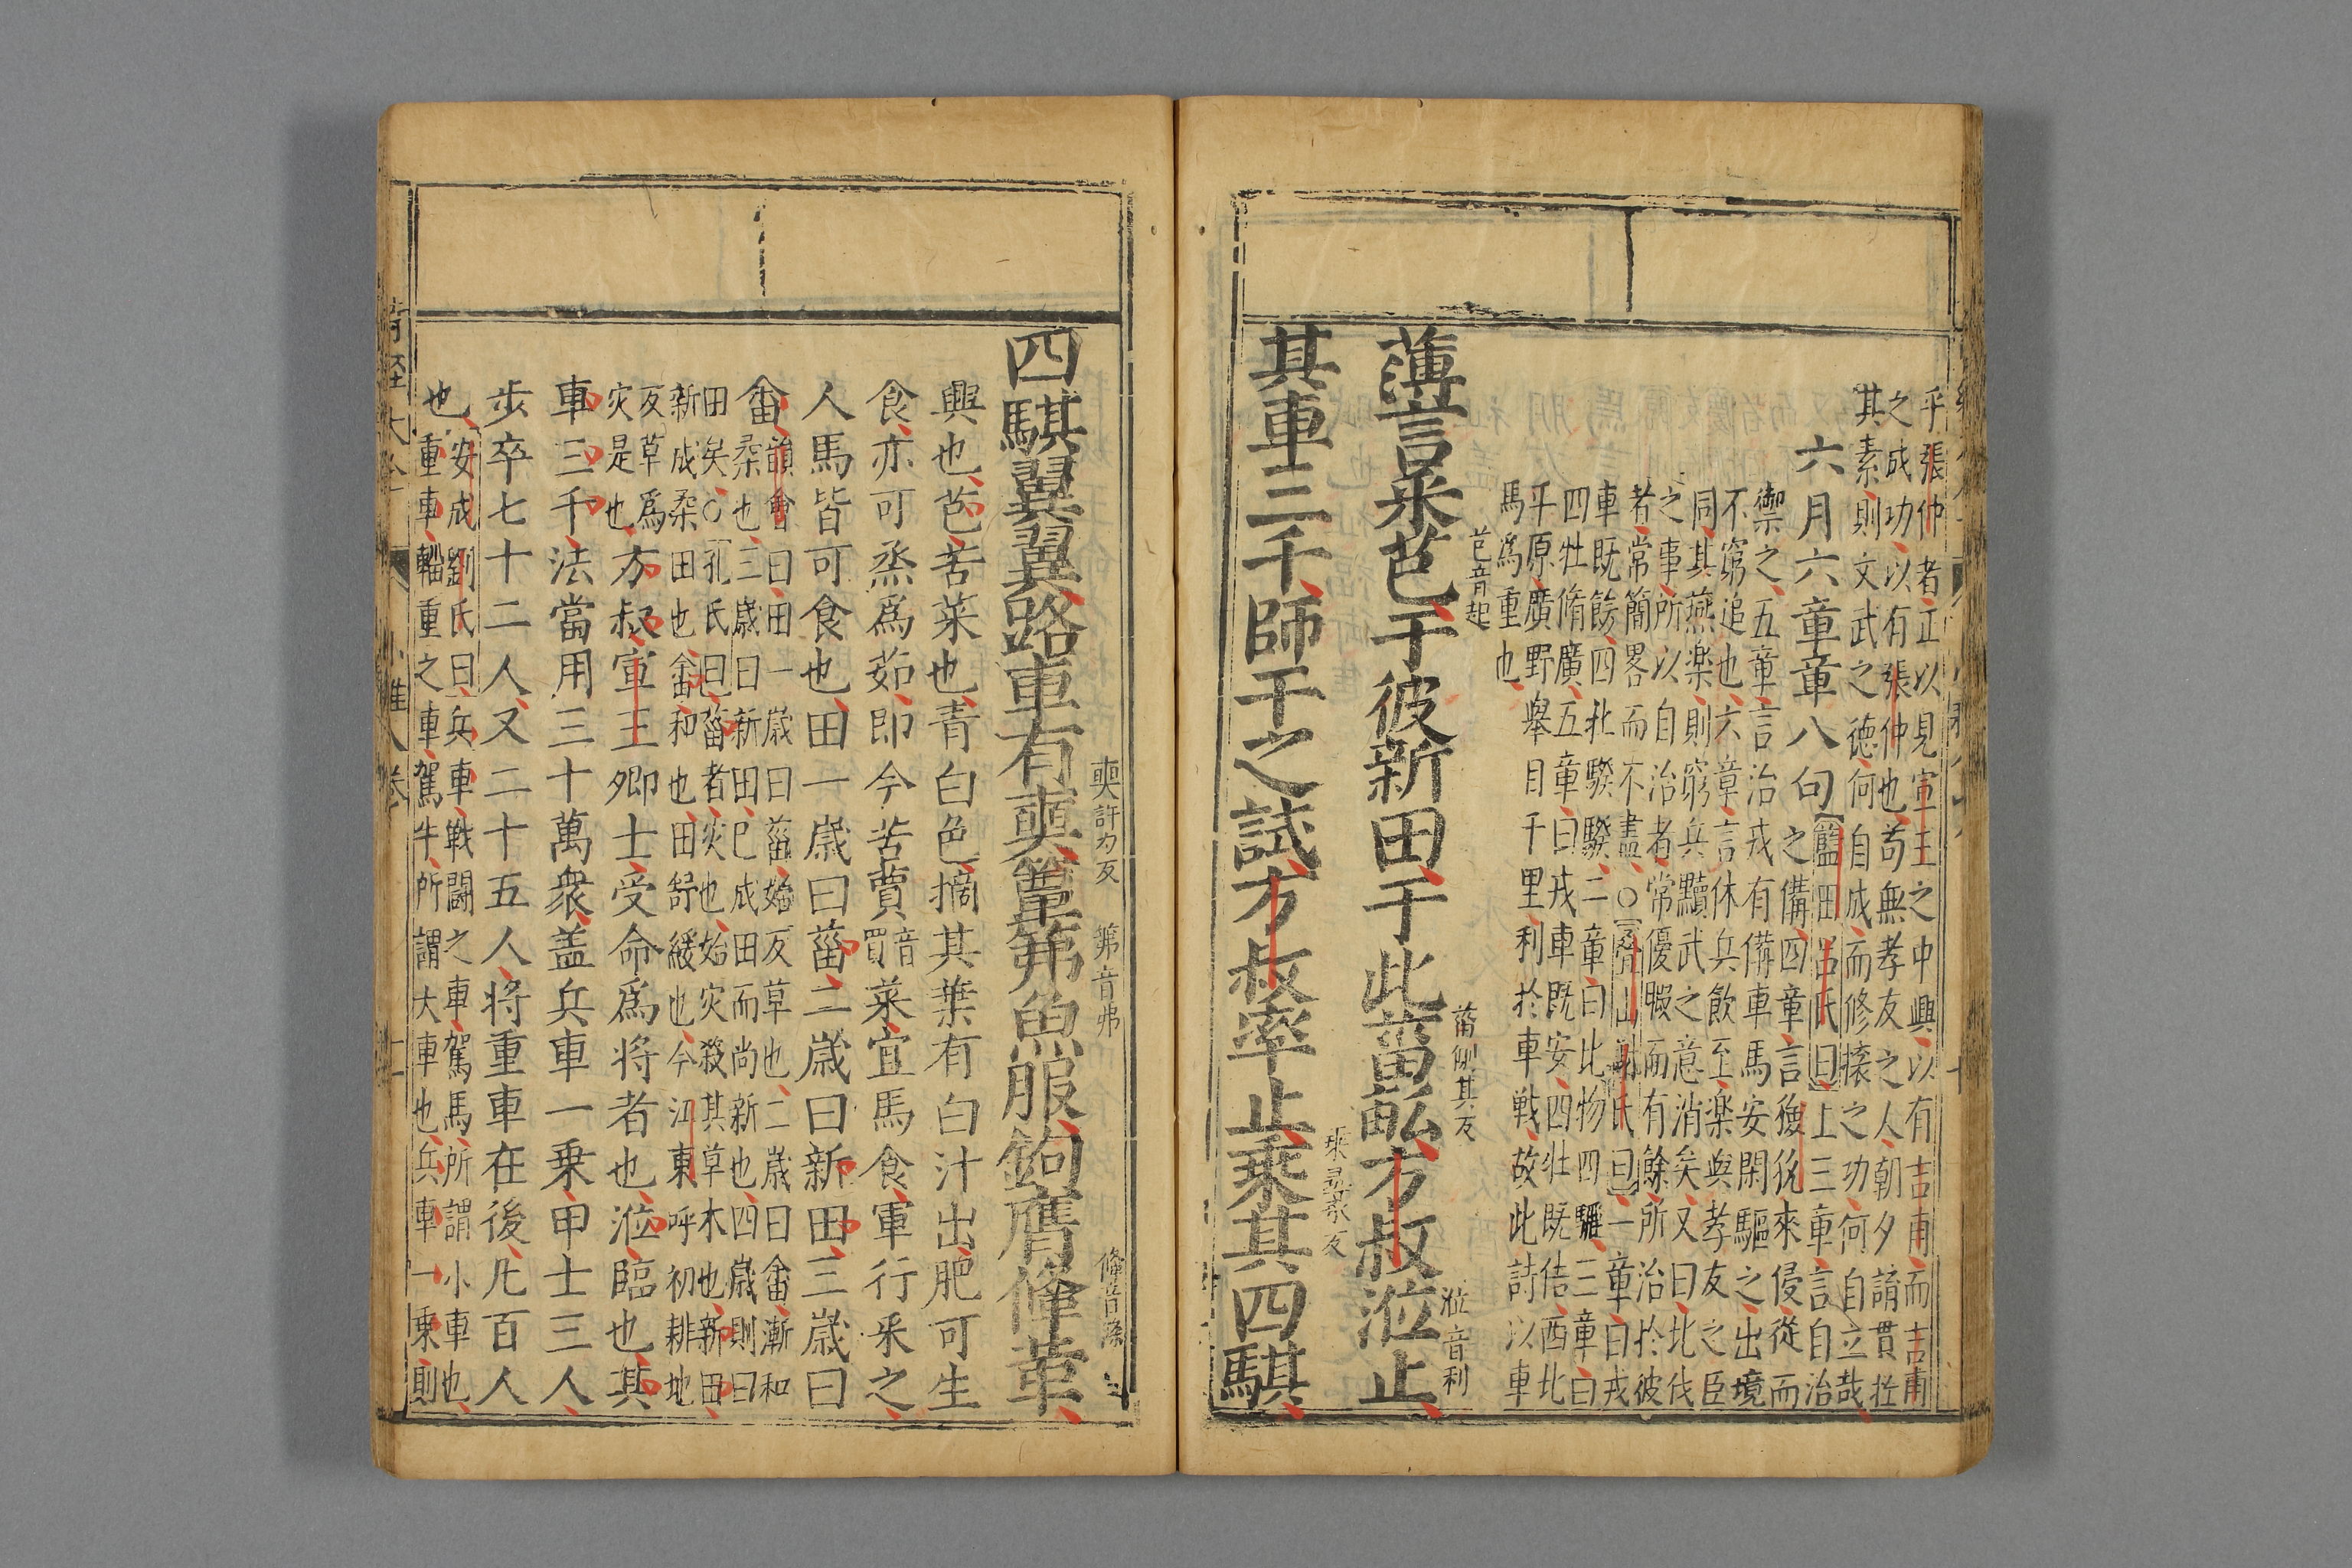 乎張仲者正以見宣王之中興以有吉甫而吉甫
之成功以有張仲也苟無孝友之人朝夕誦貫於
其素則文武之德何自成而修攘之功何自立哉
六月六章章八句
藍田呂氏曰上三章言自治
之備四章言玁狁來侵從而
禦之五章言治戎有備車馬安閑驅之出境
不窮追也六章言休兵飲至楽與孝友之臣
同其燕楽則窮兵黷武之意消矣又曰北伐
之事所以自治者常優暇而有餘所治於彼
者常簡畧而不盡○疊山謝氏曰一章曰戎
車既飭四牡騤騤二章曰比物四驪三章曰
四牡脩廣五章曰戎車既安四牡既佶西北
平原廣野舉目千里利於車戰故此詩以車
馬爲重也
薄言采芑于彼新田于此菑畝方叔涖止
芑音起
菑側其反
涖音利
其車三千師干之試方叔率止乘其四騏
四騏翼翼路車有奭簟茀魚服鉤膺鞗革
奭許力反
茀音弗
鞗音條
興也芑苦菜也青白色摘其葉有白汁出肥可生
食亦可烝爲茹即今苦蕒音買菜宜馬食軍行釆之
人馬皆可食也田一歳曰菑二歳曰新田三歳曰
畬
韻會曰田一歳曰菑始反草也二歳曰畬漸和
柔也三歳曰新田已成田而尚新也四歳則曰
田矣○孔氏曰菑者灾也始灾殺其草木也新田
新成柔田也畬和也田舒緩也今江東呼初耕地
反草爲
灾是也
方叔宣王卿士受命爲將者也涖臨也其
車三千法當用三十萬衆盖兵車一乗甲士三人
步卒七十二人又二十五人将重車在後凡百人
也
安成劉氏曰兵車戰鬪之車駕馬所謂小車也
重車輜重之車駕牛所謂大車也兵車一乗則